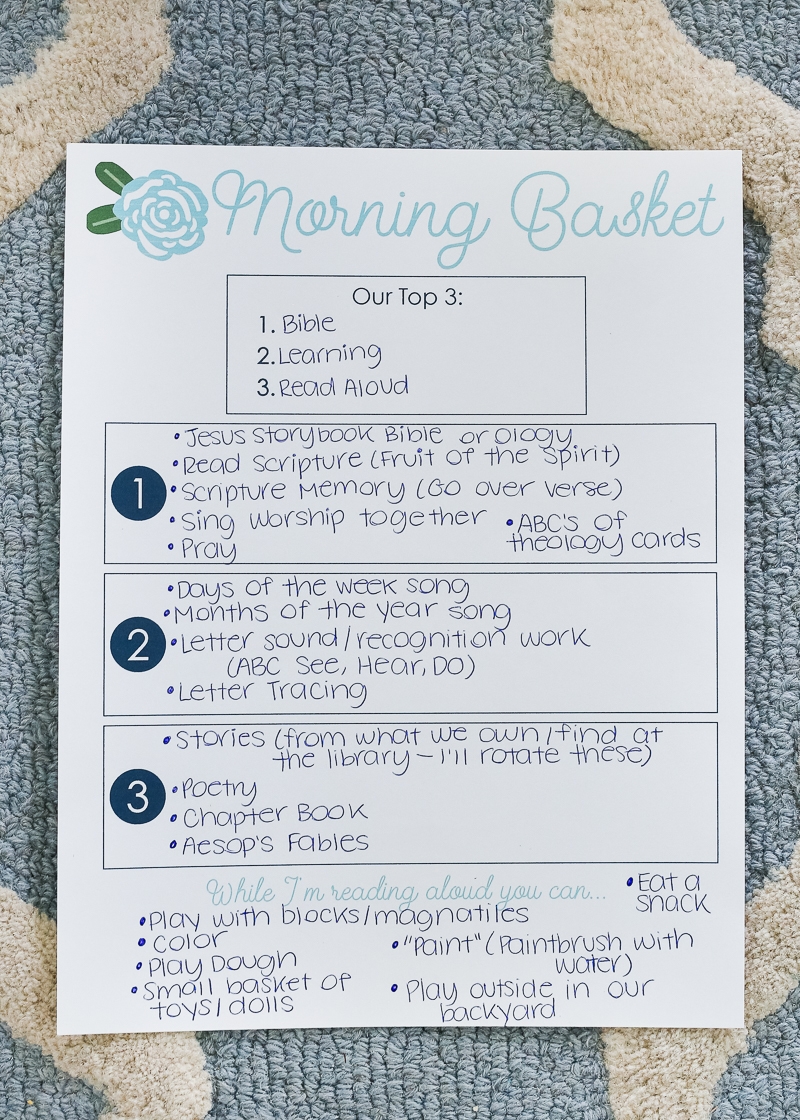 Morning Basket
Our Top 3:
1. Bible
2. Learning
3. Read Aloud
1
• Jesus Storybook Bible or ology
• Read Scripture (Fruit of the Spirit)
• Scripture Memory (Go over verse)
• Sing worship together
• Pray
• ABC's of
theology cards
2
• Days of the week song
• Months of the year song
• Letter sound/recognition work
(ABC See, Hear, Do)
• Letter Tracing
3
• Stories (from what we own/find at
the library – I'll rotate these)
• Poetry
• Chapter Book
• Aesop's Fables
While I'm reading aloud you can...
• Eat a
snack
• Play with blocks/magnatiles
• Color
• Play Dough
• Small basket of
toys/dolls
• "Paint" (Paintbrush with
water)
• Play outside in our
backyard